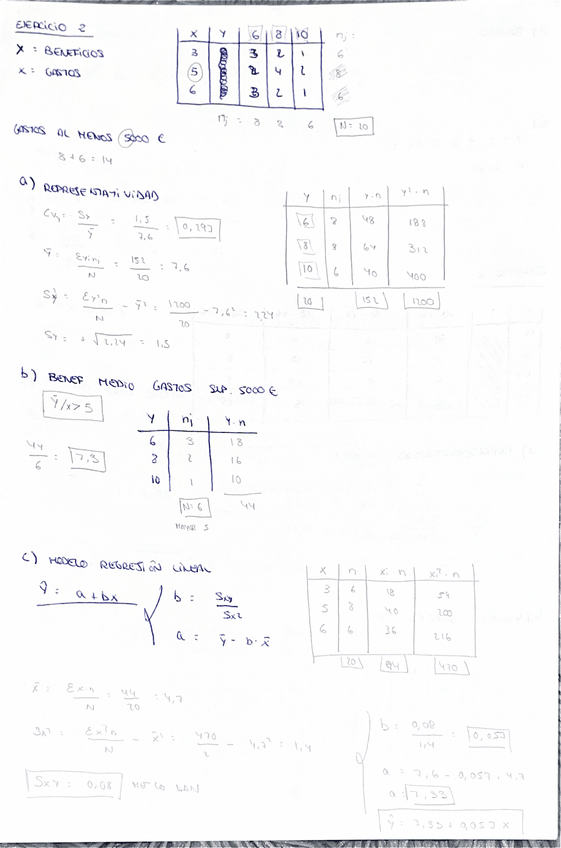 EJERCICIO 2
X = BENEFICIOS
X = GASTOS
X Y 6 8 10 nj:
3 3 2 1 6
5 4 2 8
6 3 2 1 6
nj = 8 8 6 N=20
GASTOS AL MENOS 5000 €
8+6 = 14
a) REPRESENTATIVIDAD
CVy = Sy/ȳ = 1,5/7,6 = 0,197
ȳ = Σyini/N = 152/20 = 7,6
Sy² = Σy²n/N - ȳ² = 1200/20 - 7,6² = 2,24
Sy = +√2,24 = 1,5
Y nj Y·n Y²·n
6 8 48 188
8 8 64 312
10 6 40 400
20 152 1200
b) BENEF MEDIO GASTOS SUP. 5000 €
ȳ/x>5
44/6 = 7,3
Y nj Y·n
6 3 18
8 2 16
10 1 10
N=6 44
c) MODELO REGRESIÓN LINEAL
Ŷ = a+bx
b = Sxy/Sx2
a = ȳ - b·x̄
X n xi·n xi²·n
3 6 18 54
5 8 40 200
6 6 36 216
20 94 470
x̄ = Σx·n/N = 44/20 = 4,7
Sx² = Σx²n/N - x̄² = 470/2 - 4,7² = 1,4
Sxy = 0,08
b = 0,08/1,4 = 0,057
a = 7,6 - 0,057·4,7
a = 7,33
ŷ = 7,33 + 0,057 x